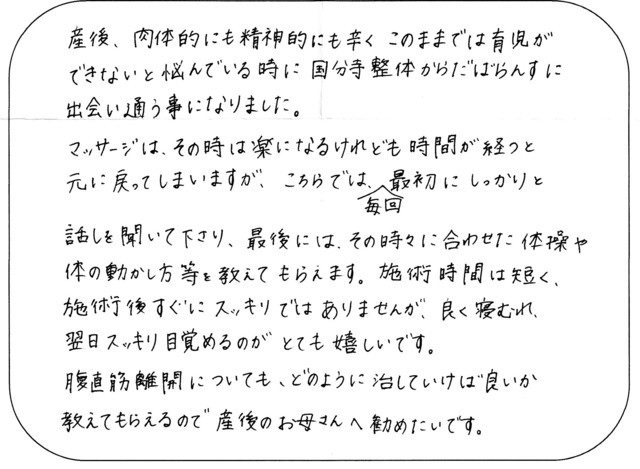 産後、肉体的にも精神的にも辛く このままでは育児が
できないと悩んでいる時に 国分寺整体からだばらんすに
出会い通う事になりました。
マッサージは、その時は楽になるけれども 時間が経つと
元に戻ってしまいますが、こちらでは、最初に しっかりと
毎回
話しを聞いて下さり、最後には、その時々に合わせた 体操や
体の動かし方 等を教えて もらえます。施術時間は短く、
施術後すぐに スッキリでは ありませんが、良く寝むれ、
翌日スッキリ目覚めるのが とても 嬉しいです。
腹直筋離開についても、どのように 治していけば良いか
教えてもらえるので 産後のお母さんへ 勧めたいです。